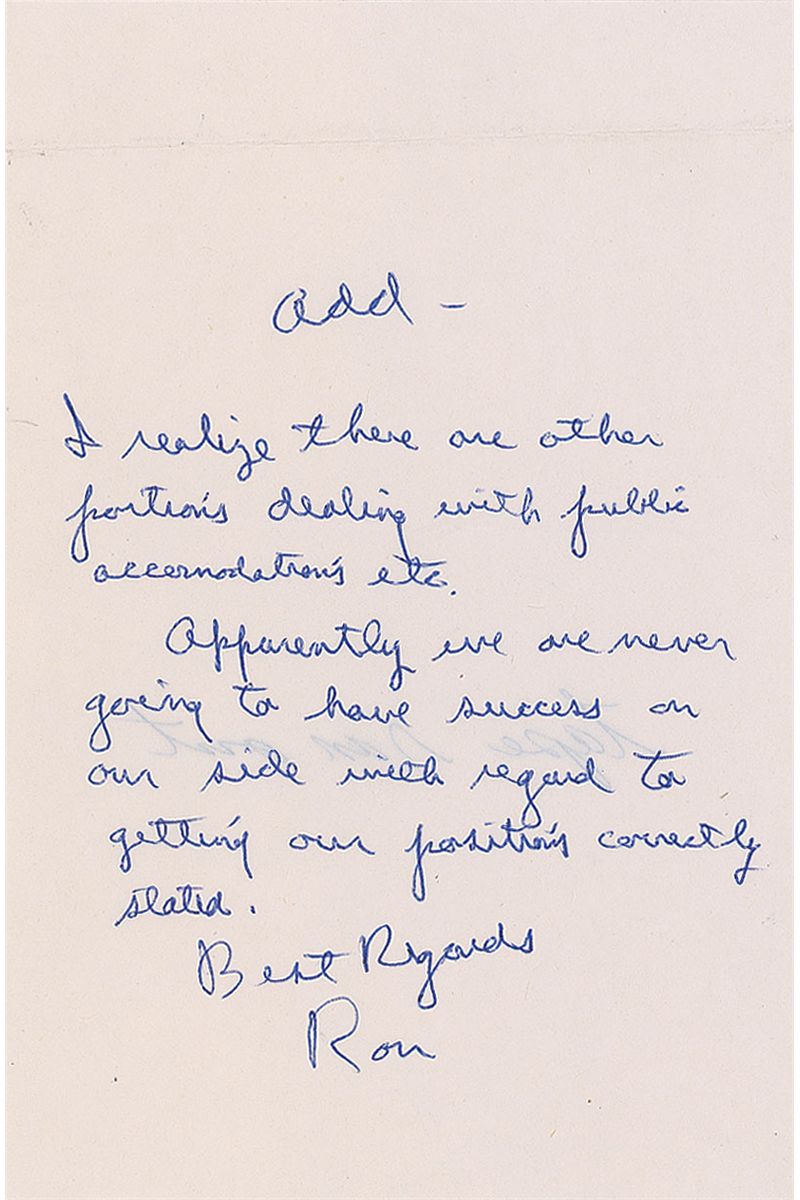 Add —
I realize there are other
portions dealing with public
accomodations etc.
Apparently we are never
going to have success on
our side with regard to
getting our positions correctly
stated.
Best Regards
Ron